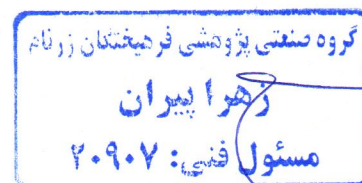 گروه صنعتی پژوهشی فرهیختگان زرنام
زهرا پیران
مسئول فنی: ۲۰۹۰۷